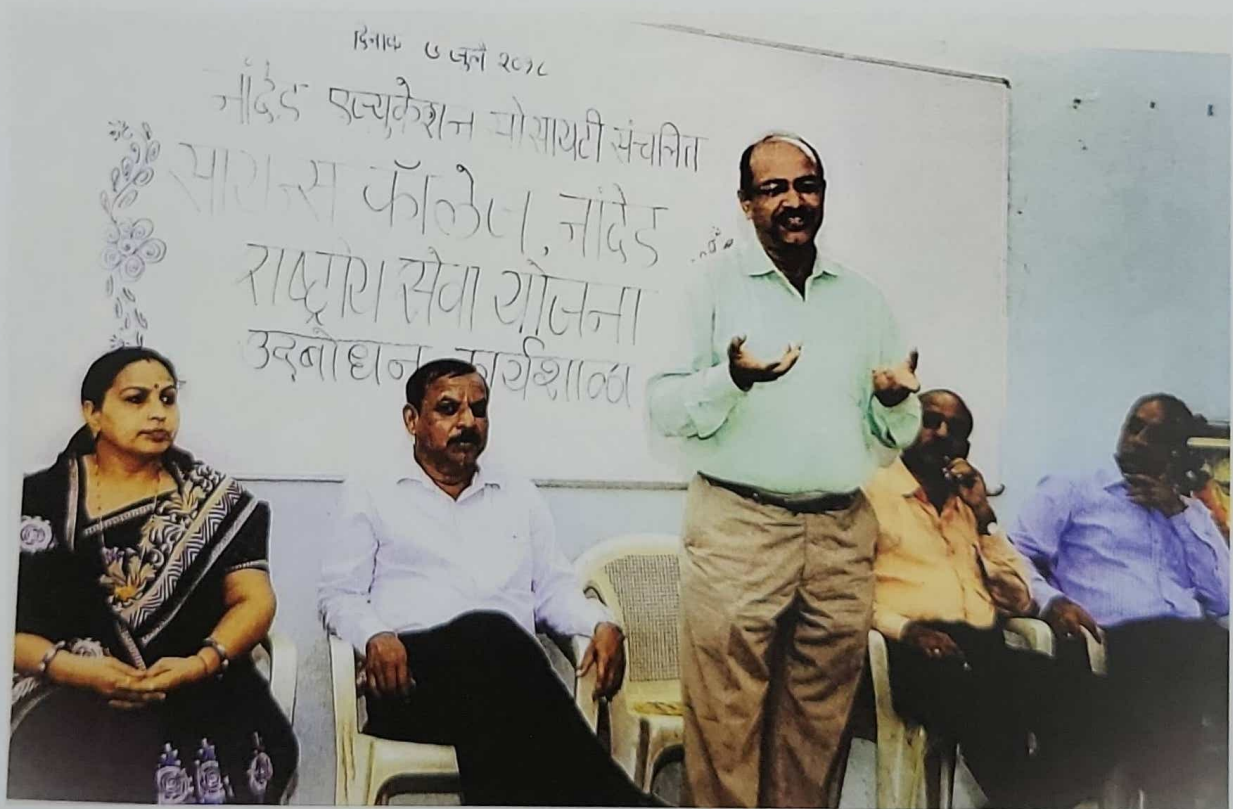 दिनांक ७ जुलै २०१८
नांदेड एज्युकेशन सोसायटी संचलित
सायन्स कॉलेज, नांदेड
राष्ट्रीय सेवा योजना
उद्बोधन कार्यशाळा